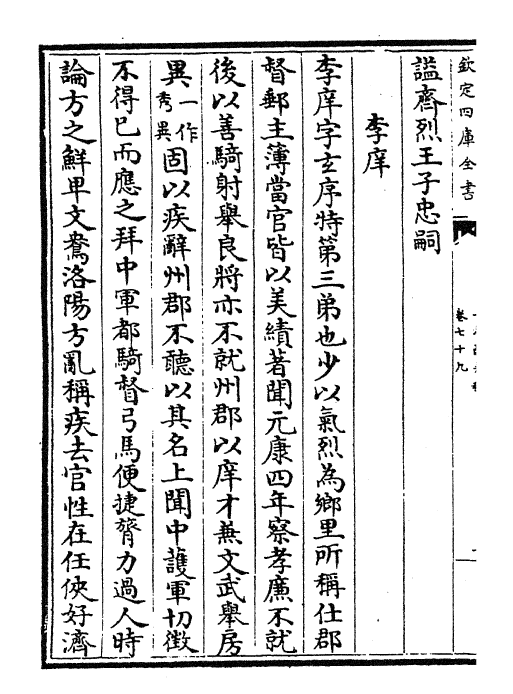 欽定四庫全書
卷七十九
謚齊烈王子忠嗣
李庠
李庠字玄序特第三弟也少以氣烈為鄉里所稱仕郡
督郵主薄當官皆以美績著聞元康四年察孝廉不就
後以善騎射舉良將亦不就州郡以庠才兼文武舉房
異一作秀異固以疾辭州郡不聽以其名上聞中護軍切徴
不得已而應之拜中軍都騎督弓馬便捷膂力過人時
論方之鮮卑文鴦洛陽方亂稱疾去官性在任俠好濟